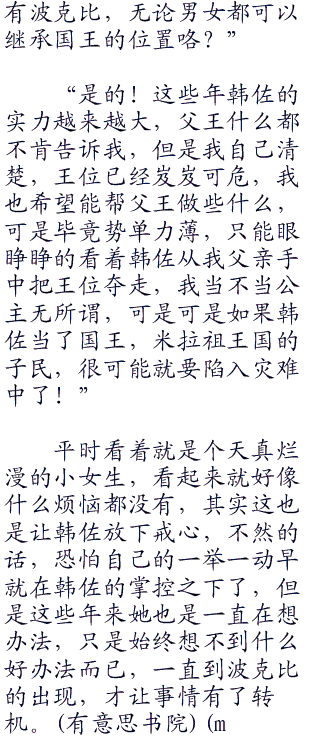 有波克比，无论男女都可以
继承国王的位置咯？”
“是的！这些年韩佐的
实力越来越大，父王什么都
不肯告诉我，但是我自己清
楚，王位已经岌岌可危，我
也希望能帮父王做些什么，
可是毕竟势单力薄，只能眼
睁睁的看着韩佐从我父亲手
中把王位夺走，我当不当公
主无所谓，可是可是如果韩
佐当了国王，米拉祖王国的
子民，很可能就要陷入灾难
中了！”
平时看着就是个天真烂
漫的小女生，看起来就好像
什么烦恼都没有，其实这也
是让韩佐放下戒心，不然的
话，恐怕自己的一举一动早
就在韩佐的掌控之下了，但
是这些年来她也是一直在想
办法，只是始终想不到什么
好办法而已，一直到波克比
的出现，才让事情有了转
机。(有意思书院) (m